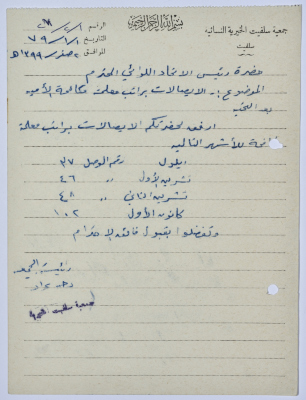 بسم الله الرحمن الرحيم
جمعية سلفيت الخيرية النسائية
سلفيت
الرقم
التاريخ ١/١/٧٩
الموافق ٢ صفر ١٣٩٩ هـ
حضرة رئيس الاتحاد اللوائي المحترم
الموضوع: الايصالات براتب معلمة مكافحة الأمية
بعد التحية
ارفع لحضرتكم الايصالات براتب معلمة
للأشهر التالية
ايلول رقم الوصل ٣٧
تشرين الأول " ٤٦
تشرين الثاني " ٤٨
كانون الأول ١٠٢
وتفضلوا بقبول فائق الاحترام
رئيسة الجمعية
جمعية سلفيت الخيرية